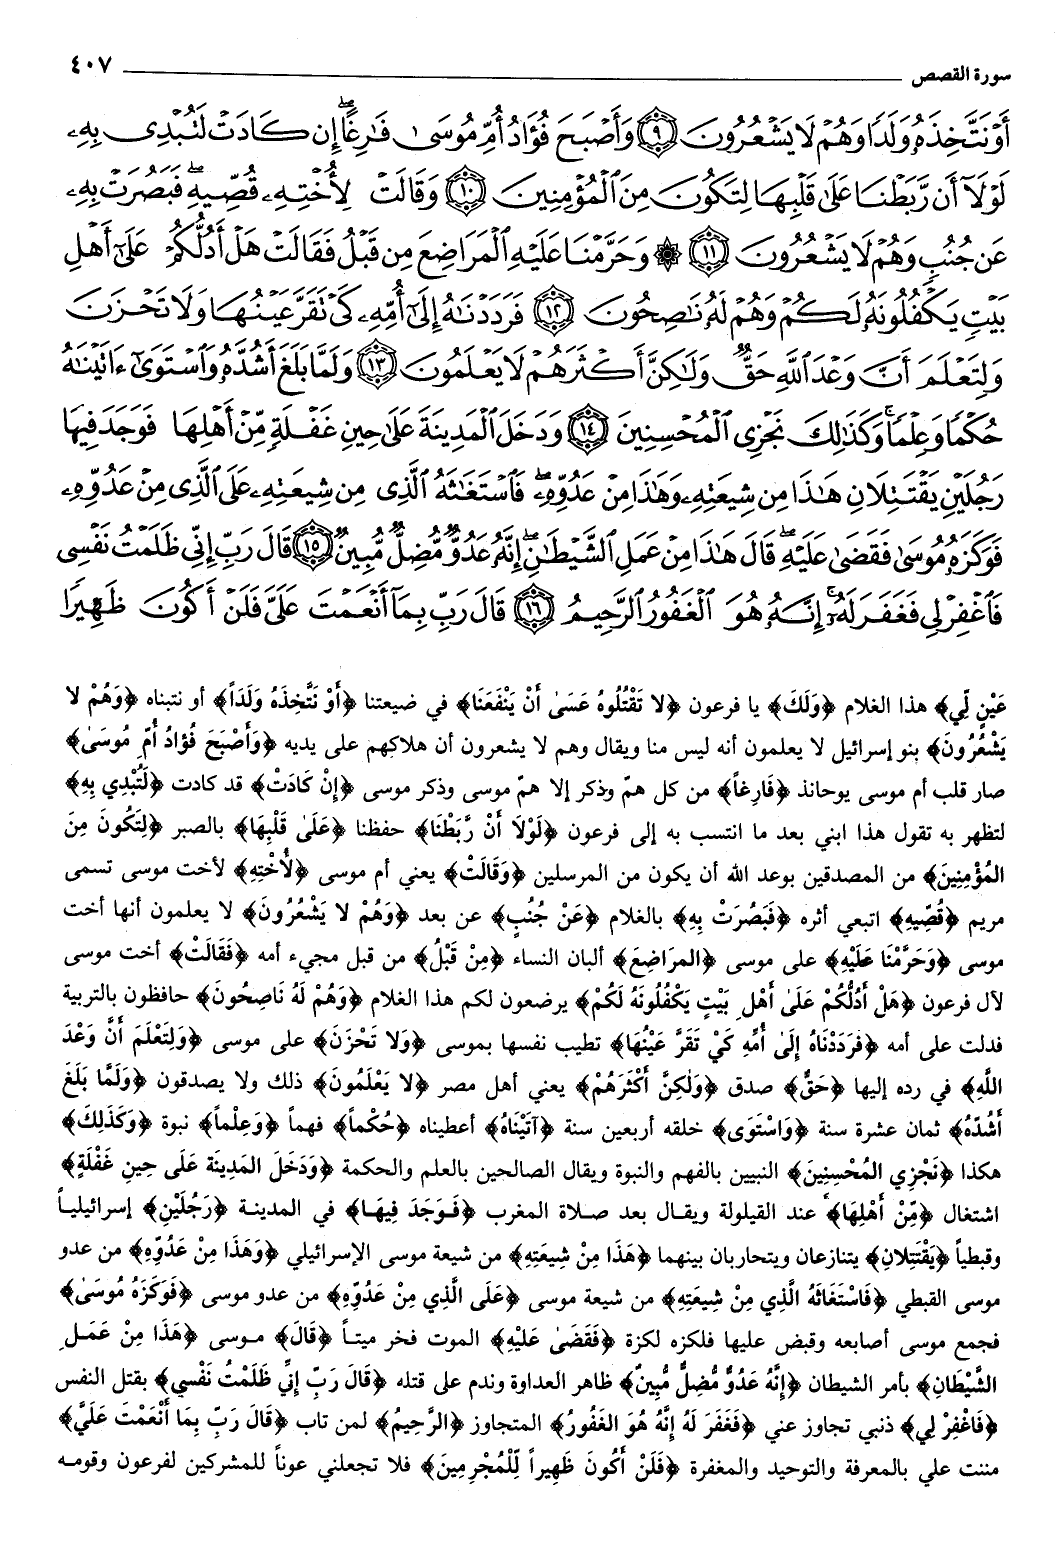 سورة القصص ٤٠٧
أَوْ نَتَّخِذَهُۥ وَلَدًا وَهُمْ لَا يَشْعُرُونَ ﴿٩﴾ وَأَصْبَحَ فُؤَادُ أُمِّ مُوسَىٰ فَٰرِغًا ۖ إِن كَادَتْ لَتُبْدِى بِهِۦ
لَوْلَآ أَن رَّبَطْنَا عَلَىٰ قَلْبِهَا لِتَكُونَ مِنَ ٱلْمُؤْمِنِينَ ﴿١٠﴾ وَقَالَتْ لِأُخْتِهِۦ قُصِّيهِ ۖ فَبَصُرَتْ بِهِۦ
عَن جُنُبٍ وَهُمْ لَا يَشْعُرُونَ ﴿١١﴾ ۞ وَحَرَّمْنَا عَلَيْهِ ٱلْمَرَاضِعَ مِن قَبْلُ فَقَالَتْ هَلْ أَدُلُّكُمْ عَلَىٰٓ أَهْلِ
بَيْتٍ يَكْفُلُونَهُۥ لَكُمْ وَهُمْ لَهُۥ نَٰصِحُونَ ﴿١٢﴾ فَرَدَدْنَٰهُ إِلَىٰٓ أُمِّهِۦ كَىْ تَقَرَّ عَيْنُهَا وَلَا تَحْزَنَ
وَلِتَعْلَمَ أَنَّ وَعْدَ ٱللَّهِ حَقٌّ وَلَٰكِنَّ أَكْثَرَهُمْ لَا يَعْلَمُونَ ﴿١٣﴾ وَلَمَّا بَلَغَ أَشُدَّهُۥ وَٱسْتَوَىٰٓ ءَاتَيْنَٰهُ
حُكْمًا وَعِلْمًا ۚ وَكَذَٰلِكَ نَجْزِى ٱلْمُحْسِنِينَ ﴿١٤﴾ وَدَخَلَ ٱلْمَدِينَةَ عَلَىٰ حِينِ غَفْلَةٍ مِّنْ أَهْلِهَا فَوَجَدَ فِيهَا
رَجُلَيْنِ يَقْتَتِلَانِ هَٰذَا مِن شِيعَتِهِۦ وَهَٰذَا مِنْ عَدُوِّهِۦ ۖ فَٱسْتَغَٰثَهُ ٱلَّذِى مِن شِيعَتِهِۦ عَلَى ٱلَّذِى مِنْ عَدُوِّهِۦ
فَوَكَزَهُۥ مُوسَىٰ فَقَضَىٰ عَلَيْهِ ۖ قَالَ هَٰذَا مِنْ عَمَلِ ٱلشَّيْطَٰنِ ۖ إِنَّهُۥ عَدُوٌّ مُّضِلٌّ مُّبِينٌ ﴿١٥﴾ قَالَ رَبِّ إِنِّى ظَلَمْتُ نَفْسِى
فَٱغْفِرْ لِى فَغَفَرَ لَهُۥٓ ۚ إِنَّهُۥ هُوَ ٱلْغَفُورُ ٱلرَّحِيمُ ﴿١٦﴾ قَالَ رَبِّ بِمَآ أَنْعَمْتَ عَلَىَّ فَلَنْ أَكُونَ ظَهِيرًا
عَيْنٍ لِّي﴾ هذا الغلام ﴿وَلَكَ﴾ يا فرعون ﴿لا تَقْتُلُوهُ عَسَىٰ أَنْ يَنْفَعَنَا﴾ في ضيعتنا ﴿أَوْ نَتَّخِذَهُ وَلَداً﴾ أو نتبناه ﴿وَهُمْ لا
يَشْعُرُونَ﴾ بنو إسرائيل لا يعلمون أنه ليس منا ويقال وهم لا يشعرون أن هلاكهم على يديه ﴿وَأَصْبَحَ فُؤَادُ أُمِّ مُوسَىٰ﴾
صار قلب أم موسى يوحانذ ﴿فَارِغاً﴾ من كل همّ وذكر إلا همّ موسى وذكر موسى ﴿إِنْ كَادَتْ﴾ قد كادت ﴿لَتُبْدِي بِهِ﴾
لتظهر به تقول هذا ابني بعد ما انتسب به إلى فرعون ﴿لَوْلَا أَنْ رَّبَطْنَا﴾ حفظنا ﴿عَلَىٰ قَلْبِهَا﴾ بالصبر ﴿لِتَكُونَ مِنَ
المُؤْمِنِينَ﴾ من المصدقين بوعد الله أن يكون من المرسلين ﴿وَقَالَتْ﴾ يعني أم موسى ﴿لأُخْتِهِ﴾ لأخت موسى تسمى
مريم ﴿قُصِّيهِ﴾ اتبعي أثره ﴿فَبَصُرَتْ بِهِ﴾ بالغلام ﴿عَنْ جُنُبٍ﴾ عن بعد ﴿وَهُمْ لا يَشْعُرُونَ﴾ لا يعلمون أنها أخت
موسى ﴿وَحَرَّمْنَا عَلَيْهِ﴾ على موسى ﴿المَرَاضِعَ﴾ ألبان النساء ﴿مِنْ قَبْلُ﴾ من قبل مجيء أمه ﴿فَقَالَتْ﴾ أخت موسى
لآل فرعون ﴿هَلْ أَدُلُّكُمْ عَلَىٰ أَهْلِ بَيْتٍ يَكْفُلُونَهُ لَكُمْ﴾ يرضعون لكم هذا الغلام ﴿وَهُمْ لَهُ نَاصِحُونَ﴾ حافظون بالتربية
فدلت على أمه ﴿فَرَدَدْنَاهُ إِلَىٰ أُمِّهِ كَيْ تَقَرَّ عَيْنُهَا﴾ تطيب نفسها بموسى ﴿وَلا تَحْزَنَ﴾ على موسى ﴿وَلِتَعْلَمَ أَنَّ وَعْدَ
اللَّهِ﴾ في رده إليها ﴿حَقٌّ﴾ صدق ﴿وَلَكِنَّ أَكْثَرَهُمْ﴾ يعني أهل مصر ﴿لا يَعْلَمُونَ﴾ ذلك ولا يصدقون ﴿وَلَمَّا بَلَغَ
أَشُدَّهُ﴾ ثمان عشرة سنة ﴿وَاسْتَوَى﴾ خلقه أربعين سنة ﴿آتَيْنَاهُ﴾ أعطيناه ﴿حُكْماً﴾ فهماً ﴿وَعِلْماً﴾ نبوة ﴿وَكَذَلِكَ﴾
هكذا ﴿نَجْزِي المُحْسِنِينَ﴾ النبيين بالفهم والنبوة ويقال الصالحين بالعلم والحكمة ﴿وَدَخَلَ المَدِينَةَ عَلَى حِينِ غَفْلَةٍ﴾
اشتغال ﴿مِّنْ أَهْلِهَا﴾ عند القيلولة ويقال بعد صلاة المغرب ﴿فَوَجَدَ فِيهَا﴾ في المدينة ﴿رَجُلَيْنِ﴾ إسرائيلياً
وقبطياً ﴿يَقْتَتِلانِ﴾ يتنازعان ويتحاربان بينهما ﴿هَذَا مِنْ شِيعَتِهِ﴾ من شيعة موسى الإسرائيلي ﴿وَهَذَا مِنْ عَدُوِّهِ﴾ من عدو
موسى القبطي ﴿فَاسْتَغَاثَهُ الَّذِي مِنْ شِيعَتِهِ﴾ من شيعة موسى ﴿عَلَى الَّذِي مِنْ عَدُوِّهِ﴾ من عدو موسى ﴿فَوَكَزَهُ مُوسَىٰ﴾
فجمع موسى أصابعه وقبض عليها فلكزه لكزة ﴿فَقَضَىٰ عَلَيْهِ﴾ الموت فخر ميتاً ﴿قَالَ﴾ موسى ﴿هَذَا مِنْ عَمَلِ
الشَّيْطَانِ﴾ بأمر الشيطان ﴿إِنَّهُ عَدُوٌّ مُّضِلٌّ مُّبِينٌ﴾ ظاهر العداوة وندم على قتله ﴿قَالَ رَبِّ إِنِّي ظَلَمْتُ نَفْسِي﴾ بقتل النفس
﴿فَاغْفِرْ لِي﴾ ذنبي تجاوز عني ﴿فَغَفَرَ لَهُ إِنَّهُ هُوَ الغَفُورُ﴾ المتجاوز ﴿الرَّحِيمُ﴾ لمن تاب ﴿قَالَ رَبِّ بِمَا أَنْعَمْتَ عَلَيَّ﴾
مننت علي بالمعرفة والتوحيد والمغفرة ﴿فَلَنْ أَكُونَ ظَهِيراً لِّلْمُجْرِمِينَ﴾ فلا تجعلني عوناً للمشركين لفرعون وقومه